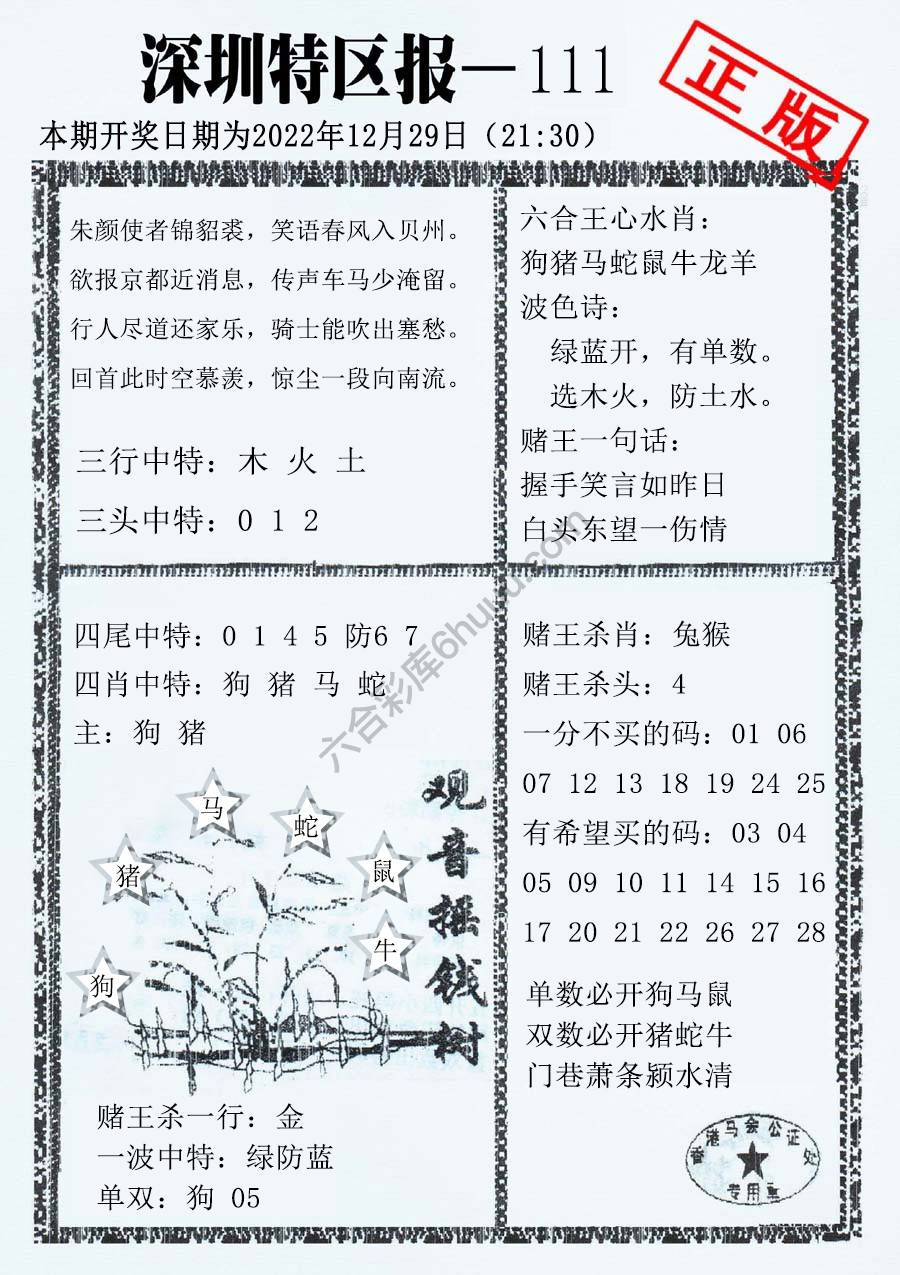 深圳特区报—111
正版
本期开奖日期为2022年12月29日（21:30）
朱颜使者锦貂裘，笑语春风入贝州。
欲报京都近消息，传声车马少淹留。
行人尽道还家乐，骑士能吹出塞愁。
回首此时空慕羡，惊尘一段向南流。
三行中特：木 火 土
三头中特：0 1 2
六合王心水肖：
狗猪马蛇鼠牛龙羊
波色诗：
绿蓝开，有单数。
选木火，防土水。
赌王一句话：
握手笑言如昨日
白头东望一伤情
四尾中特：0 1 4 5 防6 7
四肖中特：狗 猪 马 蛇
主：狗 猪
马
蛇
猪
鼠
牛
狗
观音摇钱树
赌王杀一行：金
一波中特：绿防蓝
单双：狗 05
赌王杀肖：兔猴
赌王杀头：4
一分不买的码：01 06
07 12 13 18 19 24 25
有希望买的码：03 04
05 09 10 11 14 15 16
17 20 21 22 26 27 28
单数必开狗马鼠
双数必开猪蛇牛
门巷萧条颍水清
香港马会公证处
专用章
六合彩库6huu.com